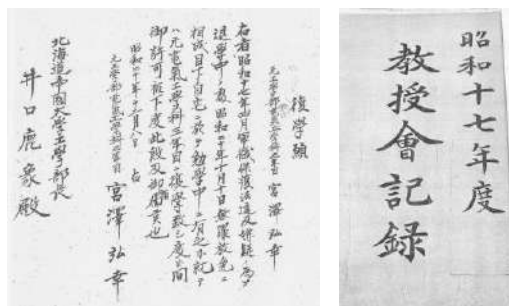 復學願
元工學部電氣工學科二年目 宮澤弘幸
右者昭和十七年四月軍機保護法違反嫌疑ノ為メ
退學中ノ處昭和二十年十月十日無罪放免ニ
相成目下自宅ニ於テ勤學中ニ有之
元電氣工學科三年目ニ復學致シ度候間
御許可被下度此段及御願候也
昭和二十年十二月八日 右
元工學部電氣工學科二年目 宮澤弘幸
北海道帝國大學工學部長
井口鹿象殿
昭和十七年度
教授會記録